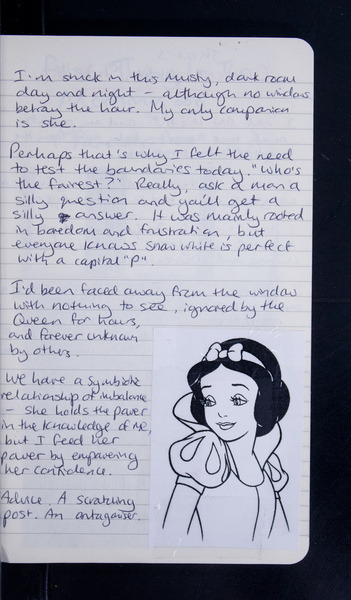 I'm stuck in this musty, dark room
day and night – although no windows
betray the hour. My only companion
is she.
Perhaps that's why I felt the need
to test the boundaries today. "Who's
the fairest?" Really, ask a man a
silly question and you'll get a
silly answer. It was mainly rooted
in boredom and frustration, but
everyone knows Snow White is perfect
with a capital "P".
I'd been faced away from the window
with nothing to see, ignored by the
Queen for hours,
and forever unknown
by others.
We have a symbiotic
relationship of imbalance
– she holds the power
in the knowledge of me,
but I feed her
power by empowering
her confidence.
Advice. A scratching
post. An antagoniser.